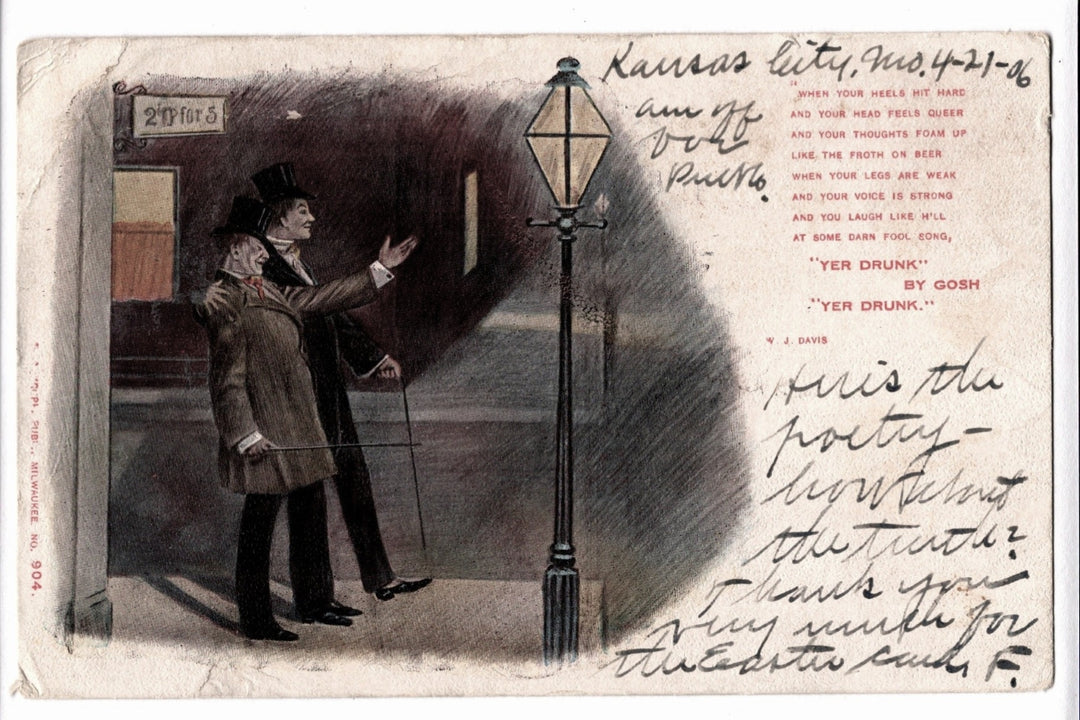 Kansas City, Mo. 4-21-06
am off
for
Pueblo.
2 for 5
"WHEN YOUR HEELS HIT HARD
AND YOUR HEAD FEELS QUEER
AND YOUR THOUGHTS FOAM UP
LIKE THE FROTH ON BEER
WHEN YOUR LEGS ARE WEAK
AND YOUR VOICE IS STRONG
AND YOU LAUGH LIKE H'LL
AT SOME DARN FOOL SONG,
"YER DRUNK"
BY GOSH
"YER DRUNK."
W. J. DAVIS
Here's the
poetry -
how about
the truth?
Thank you
very much for
the Easter card. F.
PUB. MILWAUKEE. NO. 904.